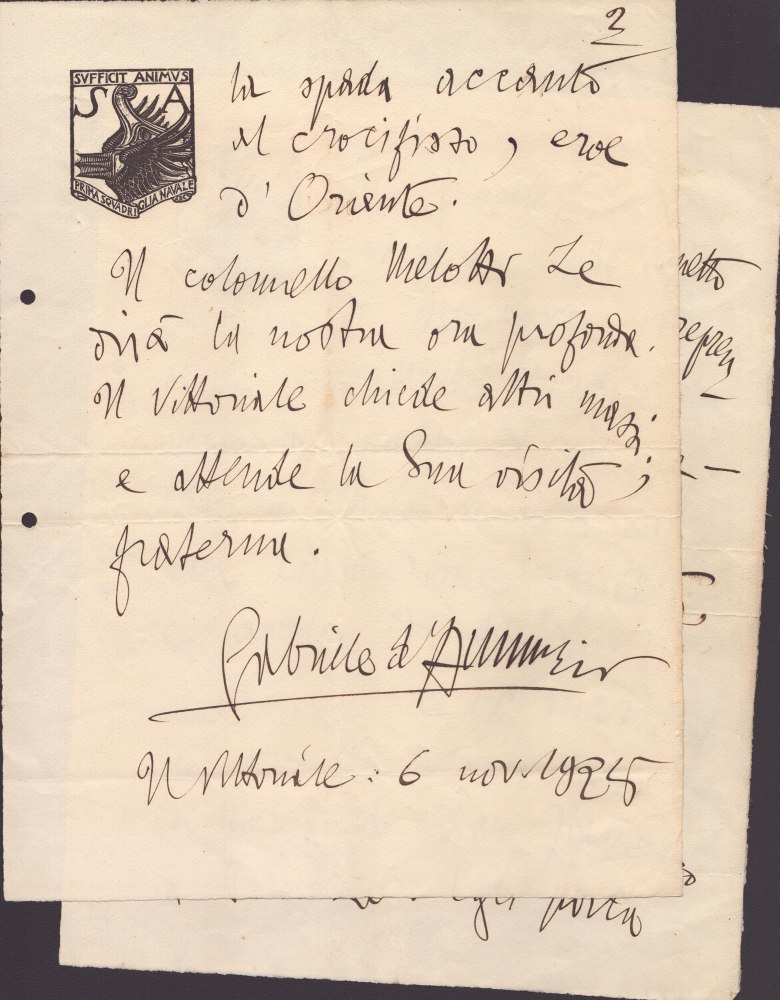 2
SVFFICIT ANIMVS
S A
PRIMA SQVADRIGLIA NAVALE
la spada accanto
al crocifisso, eroe
d'Oriente.
Il colonnello Melotti Le
dirà la nostra ora profonda.
Il Vittoriale chiede altri massi;
e attende la Sua visita,
fraterna.
Gabriele d'Annunzio
Il Vittoriale: 6 nov. 1925
porta